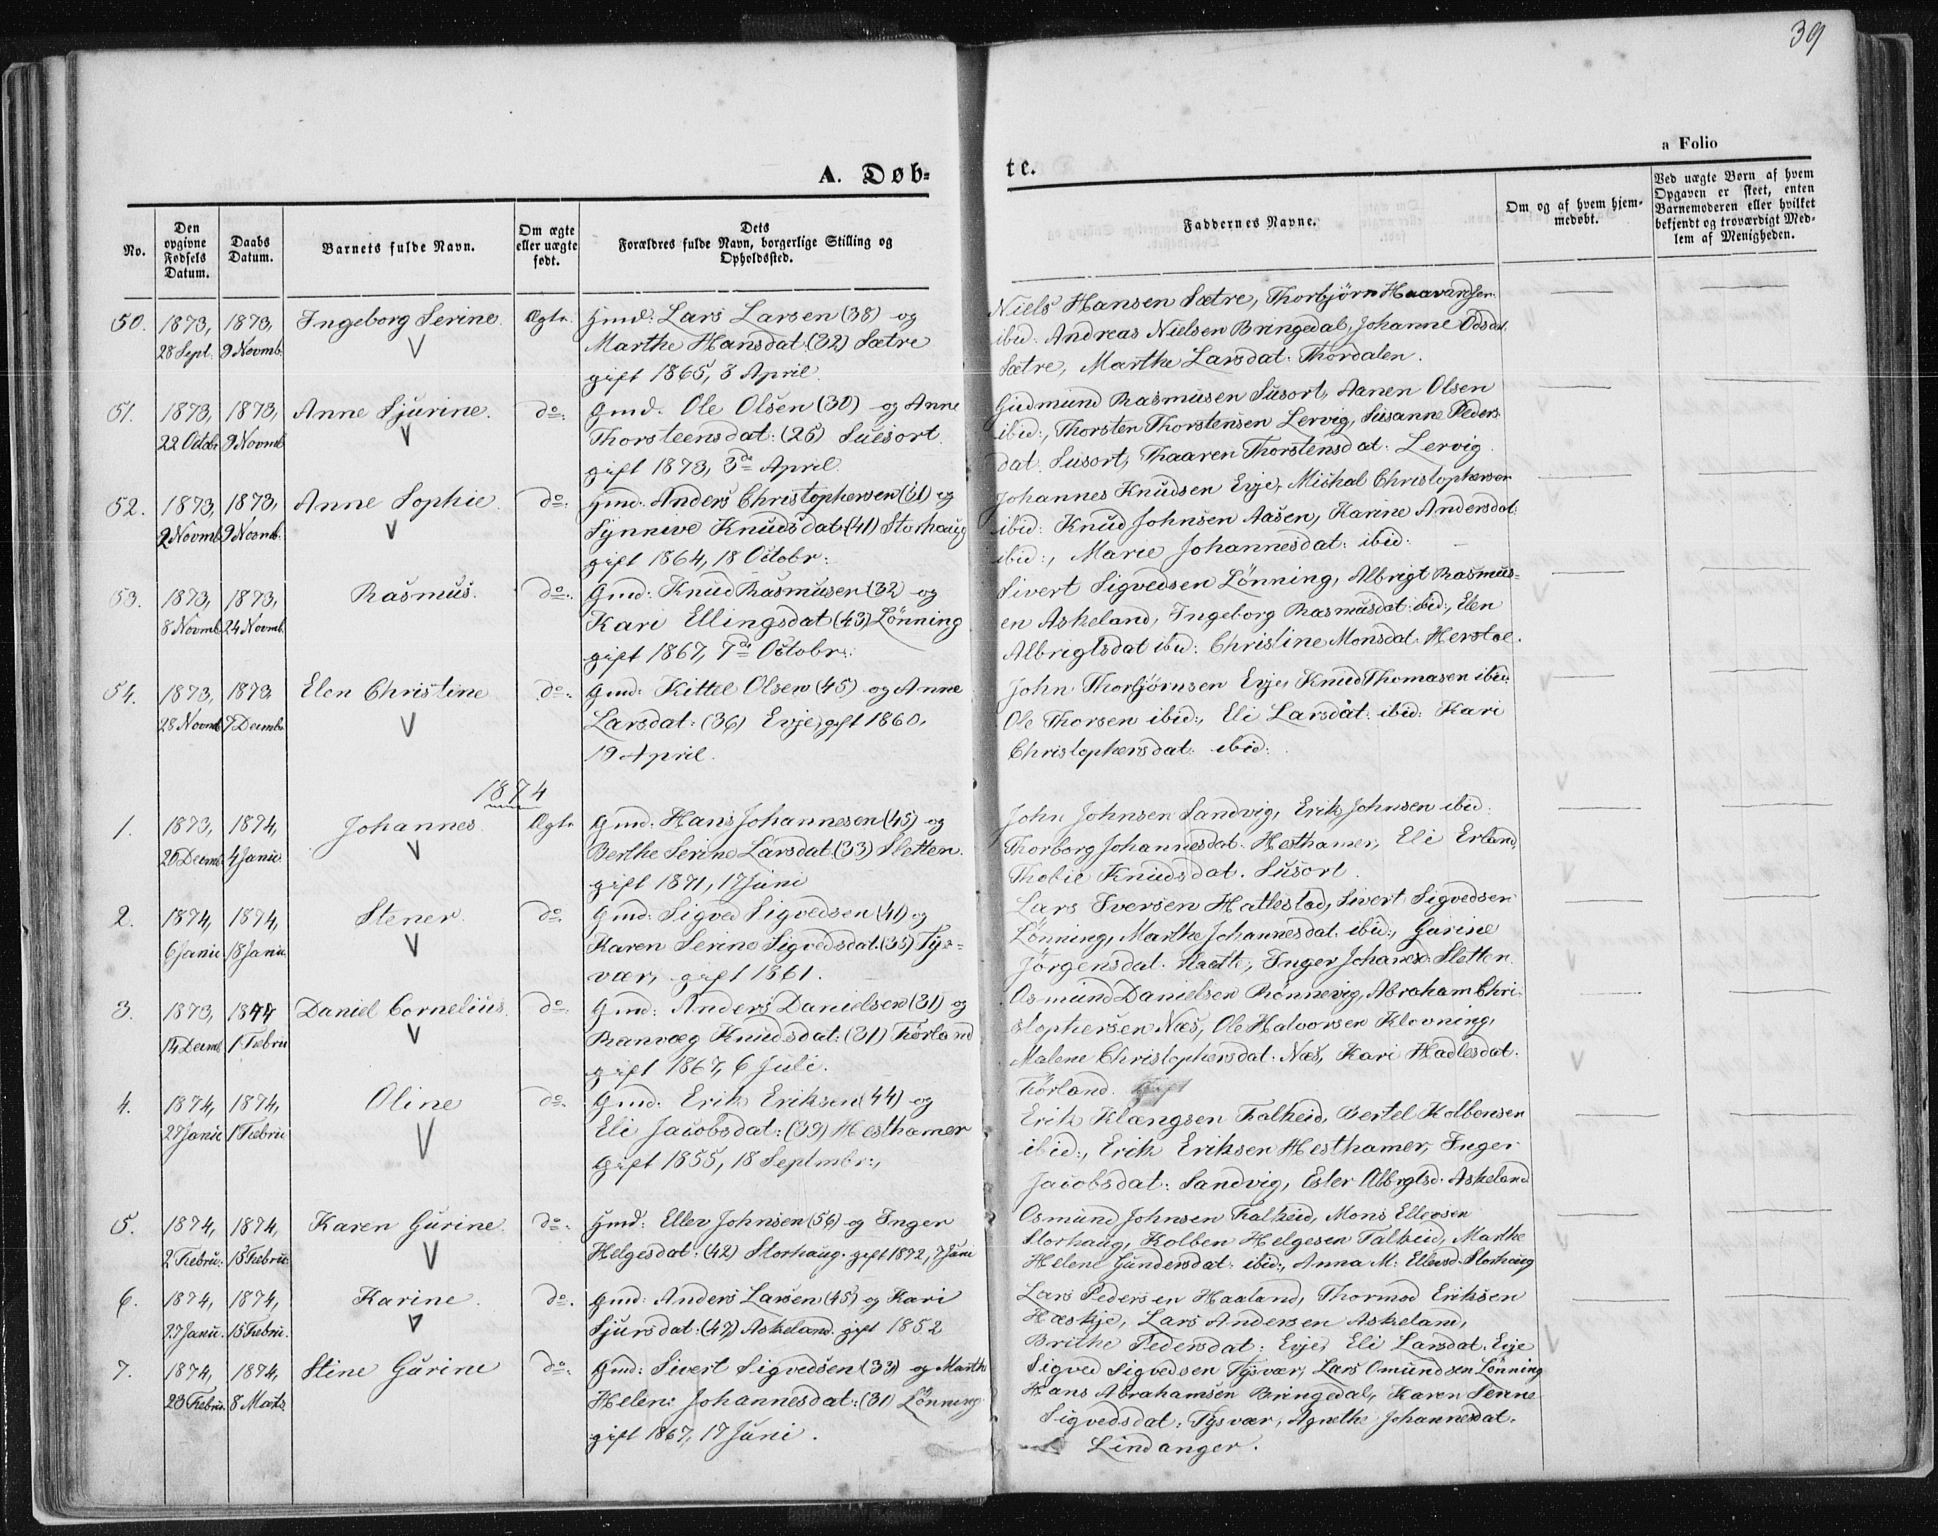 39
a Folio
A. Døb-
te.
No.
Den opgivne Fødsels Datum.
Daabs Datum.
Barnets fulde Navn.
Om ægte eller uægte født.
Dets Forældres fulde Navn, borgerlige Stilling og Opholdssted.
Faddernes Navne.
Om og af hvem hjemmedøbt.
Ved uægte Børn af hvem Opgaven er skeet, enten Barnemoderen eller hvilket bekjendt og troværdigt Medlem af Menigheden.
50. 1873, 1873, Ingeborg Serine. Ægte. Gmd: Lars Larsen (38) og
28 Sept. 9 Novmb. Marthe Hansdat. (32) Sætre
gift 1865, 3 April.
Niels Hansen Sætre, Thorbjørn Haavardsen
ibid. Andreas Nielsen Bringedal, Johanne Odsdat.
Sætre, Marthe Larsdat. Thordalen.
51. 1873, 1873, Anne Sjurine. do. Gmd. Ole Olsen (30) og Anne
22 Octobr. 9 Novmb. Thorsteensdat: (26) Suesort.
gift 1873, 3de April.
Gudmund Rasmusen Susort, Aanen Olsen
ibid:, Thorsten Thorstensen Lervig, Susanne Peders
dat. Susort, Thaaren Thorstensdat. Lervig.
52. 1873, 1873, Anne Sophie. do. Gmd. Anders Christophersen (31) og
2 Novmb. 9 Novmb. Synneve Knudsdat: (41) Storhaug
gift 1864, 18 Octobr:
Johannes Knudsen Evje, Michal Christophersen
ibid: Knud Johnsen Aasen, Karine Andersdat:
ibid:, Marie Johannesdat: ibid:
53. 1873, 1873, Rasmus. do. Gmd: Knud Rasmusen (32) og
8 Novmb. 24 Novmb. Kari Ellingsdat (43) Lønning
gift 1867, 7de Octobr:
Sivert Sigvedsen Lønning, Albrigt Rasmus-
en Askeland, Ingeborg Rasmusdat: ibid:, Elen
Albrigtsdat ibid: Christine Monsdat. Herstoe.
54. 1873, 1873 Elen Christine do. Gmd: Kittel Olsen (45) og Anne
28 Novmb. 7 Decmb. Larsdat: (36) Evje, gift 1860,
19 April.
John Thorbjørnsen Evje, Knud Thomasen ibid:
Ole Thorsen ibid:, Eli Larsdat: ibid: Kari
Christophersdat: ibid:
1874
1. 1873, 1874, Johannes. Ægte Gmd: Hans Johannesen (45) og
26 Decmb. 4 Janu. Berthe Serine Larsdat (33) Sletten.
gift 1871, 17 Juni
John Johnsen Sandvig, Erik Johnsen ibid.
Thorborg Johannesdat. Hesthamer, Eli Erland,
Thobie Knudsdat. Susort.
2. 1874, 1874, Stener. do. Gmd: Sigved Sigvedsen (41) og
6 Janu. 18 Janu. Karen Serine Sigvedsdat. (35) Tys-
vær, gift 1861.
Lars Iversen Hattestad, Sivert Sigvedsen
Lønning, Marthe Johannesdat. ibid:, Gurine
Jørgensdat. Inger Johanesd. Sletten.
3. 1873, 1874 Daniel Cornelius. do. Gmd: Anders Danielsen (31) og
14 Decmb. 1 Febru Ranvæg Knudsdat: (31) Førland
gift 1867, 6 Juli.
Osmund Danielsen Rønnevig, Abraham Chri-
stophersen Næs, Ole Halvorsen Klovning,
Malene Christophersdat. Næs, Kari Hadlesdat.
Førland.
4. 1874, 1874, Oline do. Gmd. Erik Eriksen (44) og
27 Janu 1 Febru Eli Jacobsdat: (39) Hesthamer
gift 1855, 18 Septmbr:,
Erik Klængsen Falkeid, Bertel Kolbensen
ibid:, Erik Eriksen Hesthamer, Inger
Jacobsdat: Sandvig, Ester Albrgtsd. Askeland
5. 1874, 1874, Karen Gurine. do. Gmd: Ellev Johnsen (56) og Inger
2 Febru: 15 Febru: Helgesdat: (42) Storhaug. gift 1872, 7 Juni
Osmund Johnsen Falkeid, Mons Ellevsen
Storhaug, Kolben Helgesen Falkeid, Marthe
Helene Gundersdat: ibid:, Anna M. Ellevsd. Storhaug
6. 1874, 1874, Karine. do. Gmd: Anders Larsen (45) og Kari
27 Janu. 15 Febru. Sjursdat: (47) Askeland. gift 1852
Lars Pedersen Haaland, Thormod Eriksen
Hæskje, Lars Andersen Askeland,
Brithe Pedersdat: Evje, Eli Larsdat. Evje
7. 1874, 1874, Stine Gurine do. Gmd: Sivert Sigvedsen (33) og Marth
23 Febru. 8 Marts Helene Johannesdat: (31) Lønning
gift 1867, 17 Juni.
Sigved Sigvedsen Tysvær, Lars Omundsen Lønning
Hans Abrahamsen Bringedal, Karen Serine
Sigvedsdat: Tysvær, Agnethe Johannesdat.
Lindanger.